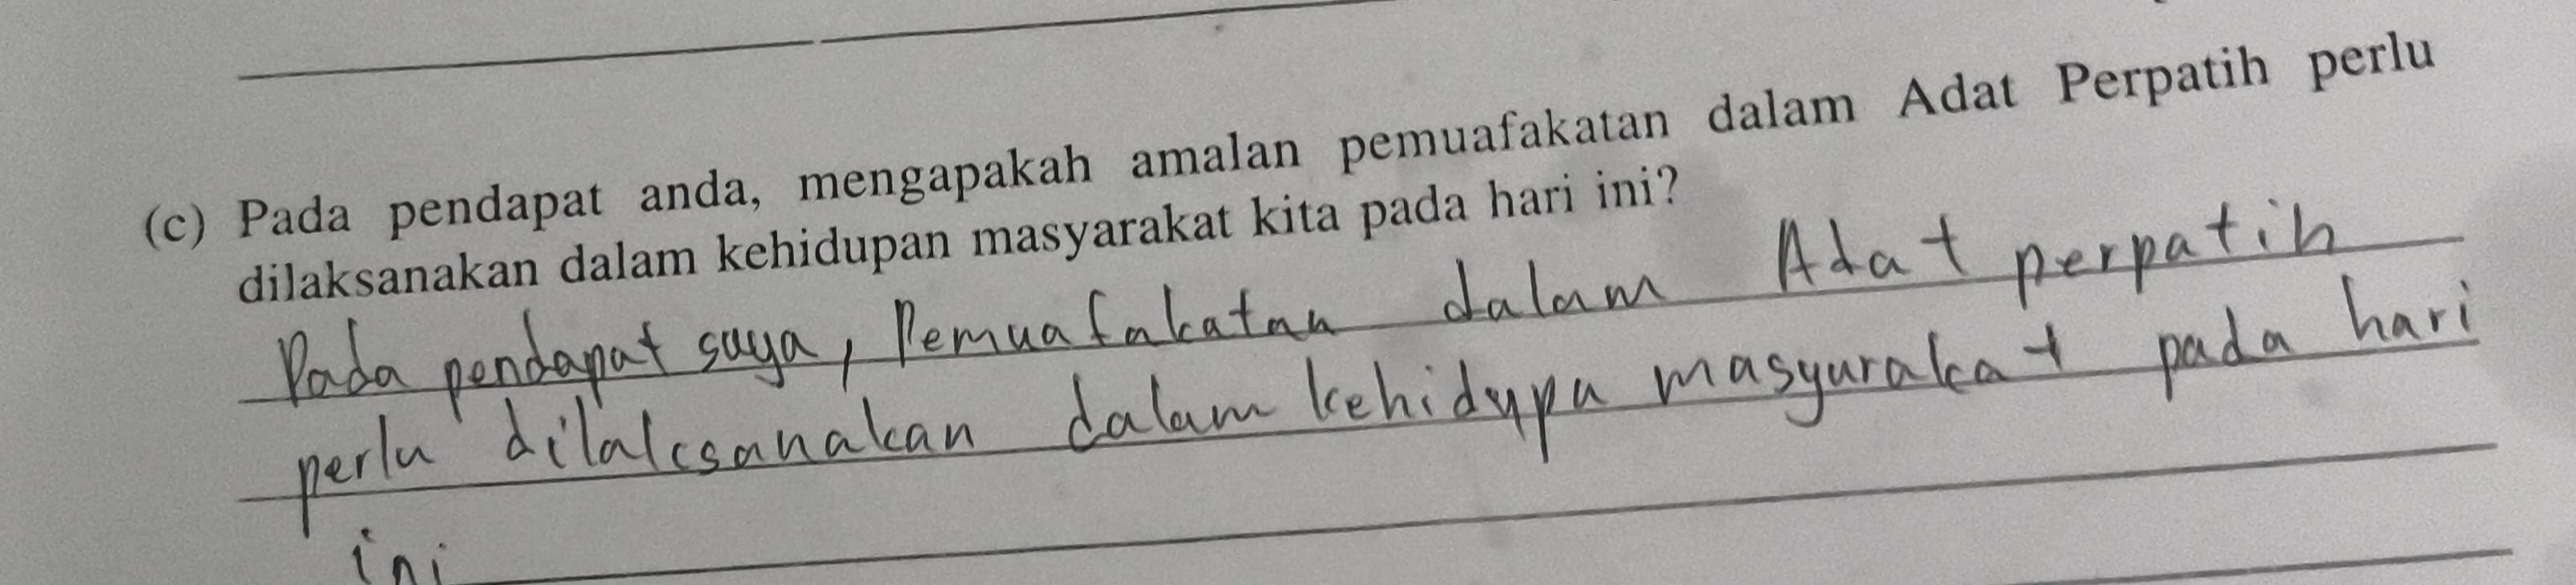 (c) Pada pendapat anda, mengapakah amalan pemuafakatan dalam Adat Perpatih perlu
dilaksanakan dalam kehidupan masyarakat kita pada hari ini?
Pada pendapat saya, Pemuafakatan dalam Adat perpatih
perlu dilaksanakan dalam kehidupa masyarakat pada hari
ini